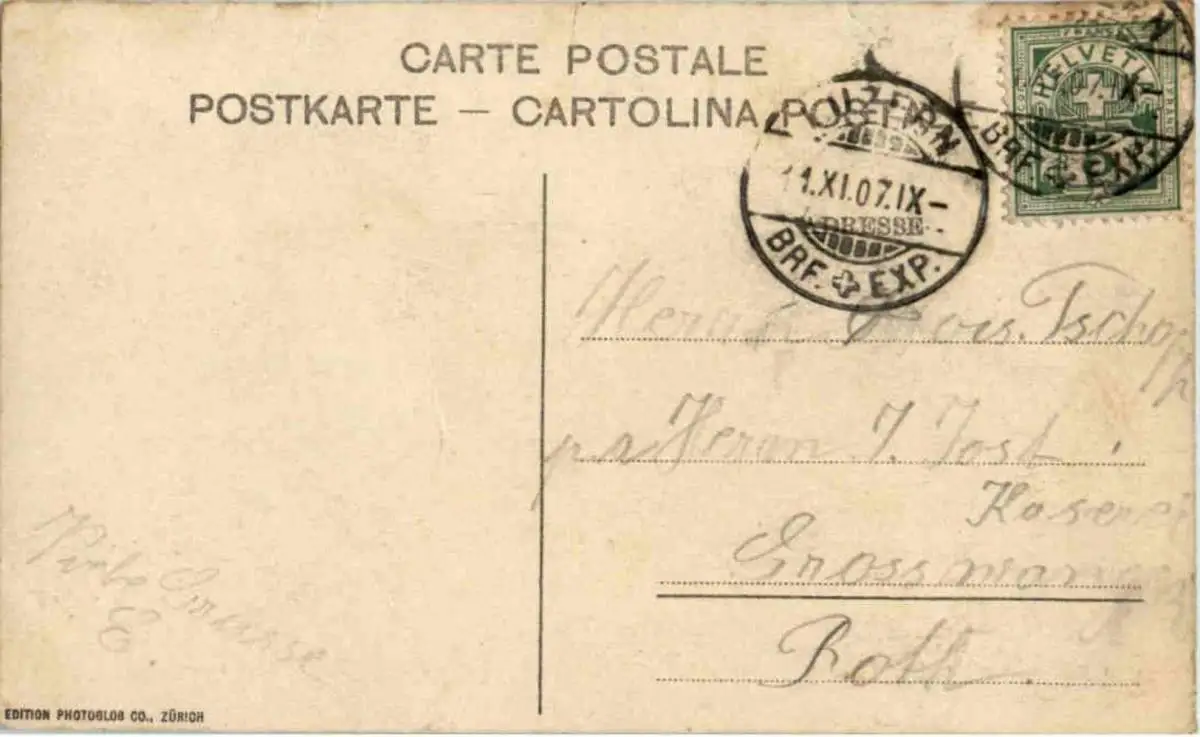 CARTE POSTALE
POSTKARTE — CARTOLINA POST
LUZERN
11.XI.07.IX—
ADRESSE
BRF. EXP.
HELVETIA
07.IX—
BRF. EXP.
Herrn Alois. Tschopp
p a Herrn J. Jost
Kaserei
Grosswangen
Roth
Viele Grüsse
E.
EDITION PHOTOGLOB CO., ZÜRICH